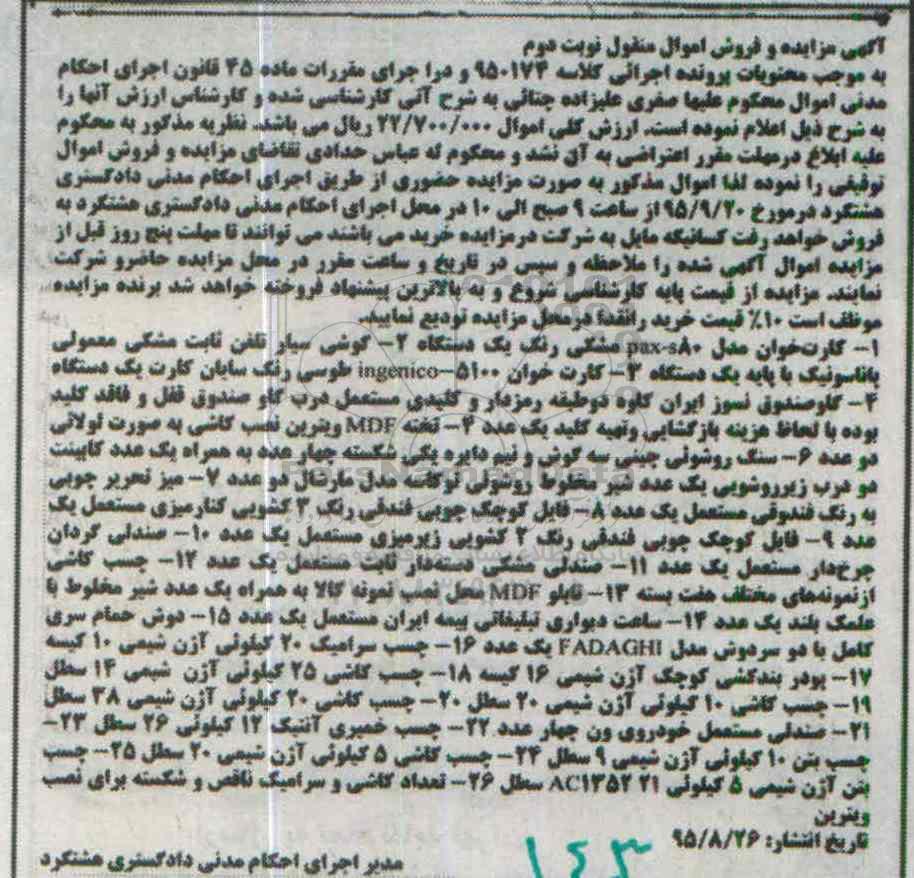 آگهی مزایده و فروش اموال منقول نوبت دوم
به موجب محتویات پرونده اجرائی کلاسه ۹۵۰۱۷۴ و درا جرای مقررات ماده ۴۵ قانون اجرای احکام
مدنی اموال محکوم علیها صفری علیزاده چنائی به شرح آتی کارشناسی شده و کارشناس ارزش آنها را
به شرح ذیل اعلام نموده است. ارزش کلی اموال ۲۲/۷۰۰/۰۰۰ ریال می باشد. نظریه مذکور به محکوم
علیه ابلاغ درمهلت مقرر اعتراضی به آن نشد و محکوم له عباس حدادی تقاضای مزایده و فروش اموال
توقیفی را نموده لذا اموال مذکور به صورت مزایده حضوری از طریق اجرای احکام مدنی دادگستری
هشتگرد درمورخ ۹۵/۹/۲۰ از ساعت ۹ صبح الی ۱۰ در محل اجرای احکام مدنی دادگستری هشتگرد به
فروش خواهد رفت کسانیکه مایل به شرکت درمزایده خرید می باشند می توانند تا مهلت پنج روز قبل از
مزایده اموال آگهی شده را ملاحظه و سپس در تاریخ و ساعت مقرر در محل مزایده حاضرو شرکت
نمایند. مزایده از قیمت پایه کارشناسی شروع و به بالاترین پیشنهاد فروخته خواهد شد برنده مزایده
موظف است ۱۰٪ قیمت خرید رانقدا درمحل مزایده تودیع نمایید.
۱– کارت‌خوان مدل pax-s۸۰ مشکی رنگ یک دستگاه ۲– گوشی سیار تلفن ثابت مشکی معمولی
پاناسونیک با پایه یک دستگاه ۳– کارت خوان ingenico–۵۱۰۰ طوسی رنگ سایان کارت یک دستگاه
۴– گاوصندوق نسوز ایران کاوه دوطبقه رمزدار و کلیدی مستعمل درب گاو صندوق قفل و فاقد کلید
بوده با لحاظ هزینه بازگشایی وتهیه کلید یک عدد ۴– تخته MDF ویترین نصب کاشی به صورت لولائی
دو عدد ۶– سنگ روشوئی چینی سه گوش و نیم دایره یکی شکسته چهار عدد به همراه یک عدد کابینت
دو درب زیرروشویی یک عدد شیر مخلوط روشوئی توکاسه مدل مارشال دو عدد ۷– میز تحریر چوبی
به رنگ فندوقی مستعمل یک عدد ۸– فایل کوچک چوبی فندقی رنگ ۳ کشویی کنارمیزی مستعمل یک
عدد ۹– فایل کوچک چوبی فندقی رنگ ۲ کشویی زیرمیزی مستعمل یک عدد ۱۰– صندلی گردان
چرخ‌دار مستعمل یک عدد ۱۱– صندلی مشکی دسته‌دار ثابت مستعمل یک عدد ۱۲– چسب کاشی
ازنمونه‌های مختلف هفت بسته ۱۳– تابلو MDF محل نصب نمونه کالا به همراه یک عدد شیر مخلوط با
علمک بلند یک عدد ۱۴– ساعت دیواری تبلیغاتی بیمه ایران مستعمل یک عدد ۱۵– دوش حمام سری
کامل با دو سردوش مدل FADAGHI یک عدد ۱۶– چسب سرامیک ۲۰ کیلوئی آژن شیمی ۱۰ کیسه
۱۷– پودر بندکشی کوچک آژن شیمی ۱۶ کیسه ۱۸– چسب کاشی ۲۵ کیلوئی آژن شیمی ۱۴ سطل
۱۹– چسب کاشی ۱۰ کیلوئی آژن شیمی ۲۰ سطل ۲۰– چسب کاشی ۲۰ کیلوئی آژن شیمی ۳۸ سطل
۲۱– صندلی مستعمل خودروی ون چهار عدد ۲۲– چسب خمیری آنتیک ۱۲ کیلوئی ۲۶ سطل ۲۳–
چسب بتن ۱۰ کیلوئی آژن شیمی ۹ سطل ۲۴– چسب کاشی ۵ کیلوئی آژن شیمی ۲۰ سطل ۲۵– چسب
بتن آژن شیمی ۵ کیلوئی AC۱۳۵۲ ۲۱ سطل ۲۶– تعداد کاشی و سرامیک ناقص و شکسته برای نصب
ویترین
تاریخ انتشار: ۹۵/۸/۲۶
مدیر اجرای احکام مدنی دادگستری هشتگرد
۱۴۳
ParsNamadData